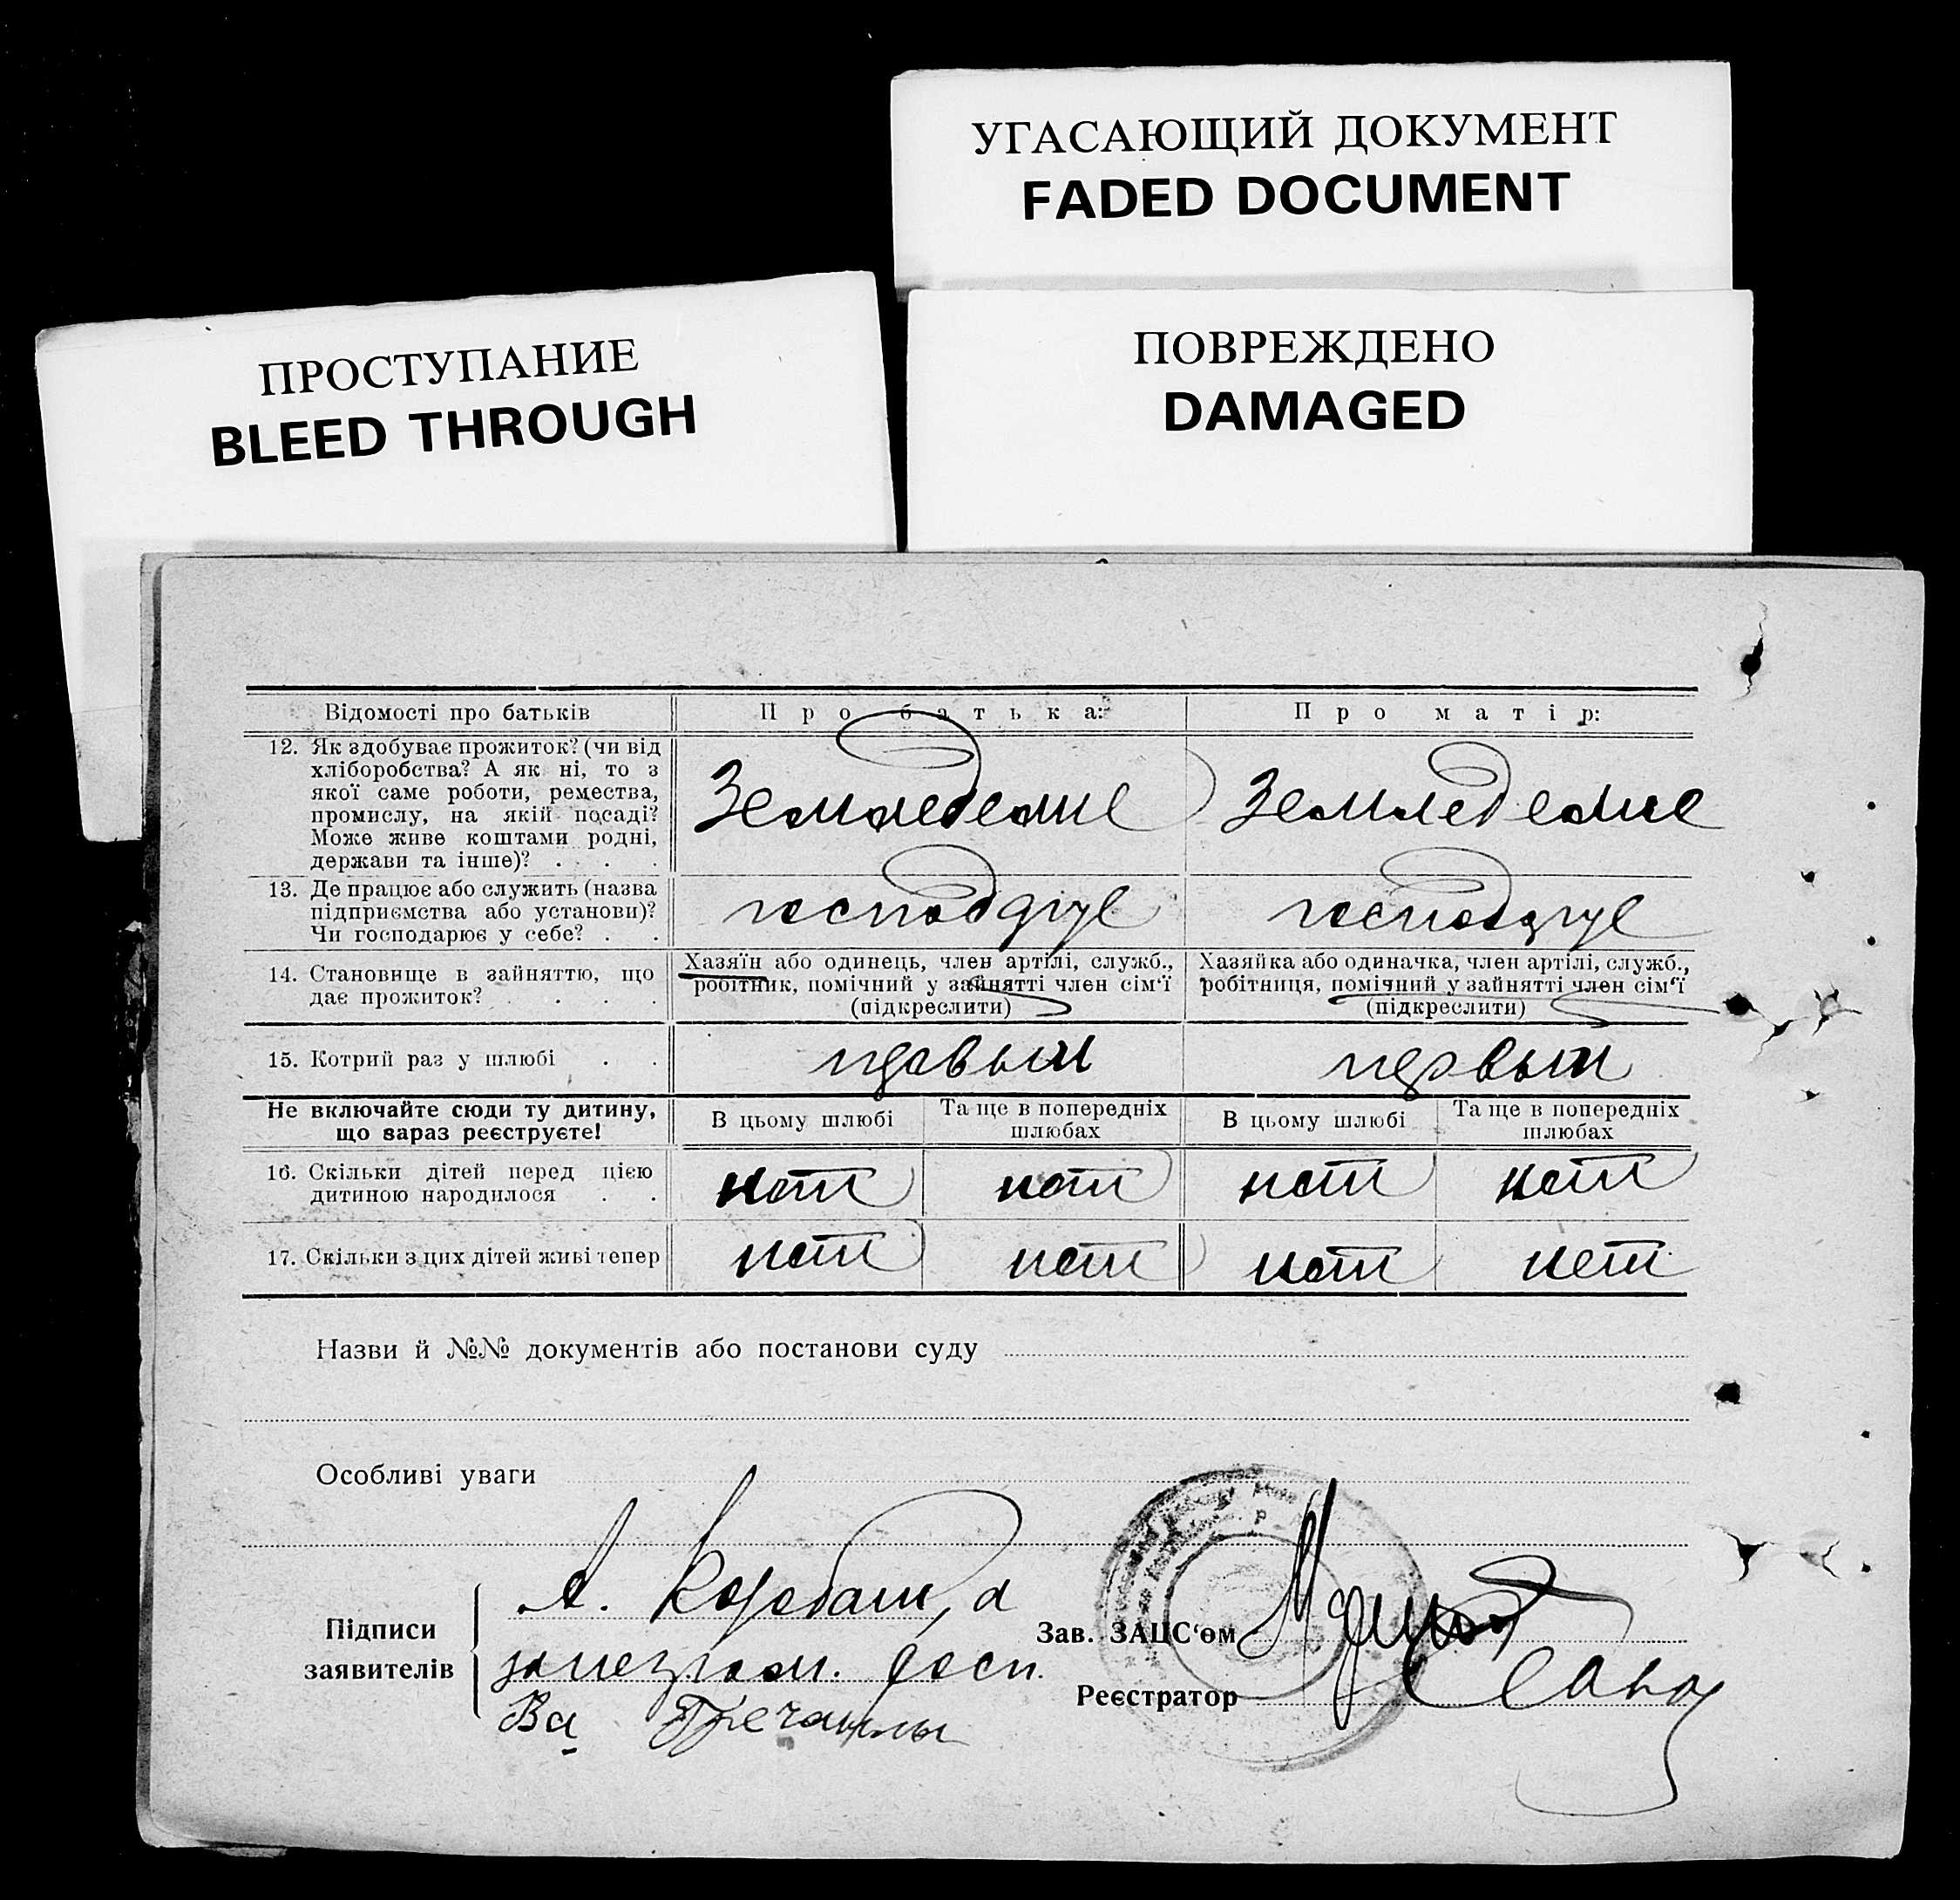 УГАСАЮЩИЙ ДОКУМЕНТ
FADED DOCUMENT
ПРОСТУПАНИЕ
BLEED THROUGH
ПОВРЕЖДЕНО
DAMAGED
Відомості про батьків
Про батька:
Про матір:
12. Як здобуває прожиток? (чи від
хліборобства? А як ні, то з
якої саме роботи, ремества,
промислу, на якій посаді?
Може живе коштами родні,
держави та інше)? . . .
Земледелие
Земледелие
13. Де працює або служить (назва
підприємства або установи)?
Чи господарює у себе? . .
14. Становище в зайняттю, що
дає прожиток? . . . .
Хазяїн або одинець, член артілі, служб.,
робітник, помічний у зайнятті член сім'ї
(підкреслити)
Хазяйка або одиначка, член артілі, служб.,
робітниця, помічний у зайнятті член сім'ї
(підкреслити)
15. Котрий раз у шлюбі . .
первый
первый
Не включайте сюди ту дитину,
що зараз реєструєте!
В цьому шлюбі
Та ще в попередніх
шлюбах
В цьому шлюбі
Та ще в попередніх
шлюбах
16. Скільки дітей перед цією
дитиною народилося . .
нет нет нет нет
17. Скільки з цих дітей живі тепер
нет нет нет нет
Назви й №№ документів або постанови суду
Особливі уваги
Підписи
заявителів
А.
Зав. ЗАЦС'ом
Реєстратор